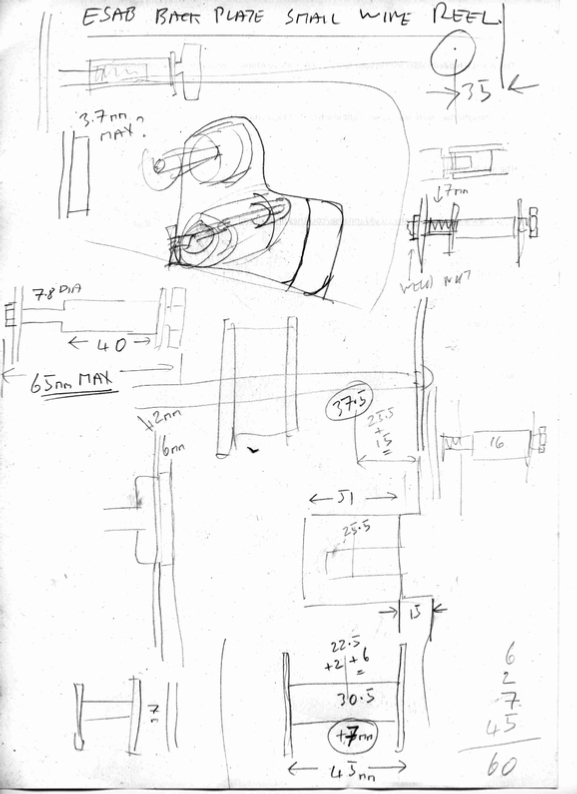 ESAB BACK PLATE SMALL WIRE REEL
35
3.7mm
MAX?
7mm
WELD NUT
7.8 DIA
40
65mm MAX
37.5
25.5
+
15
=
2mm
6mm
16
51
25.5
15
22.5
+2 +6
=
30.5
+7mm
45mm
7
6
2
7
45
60